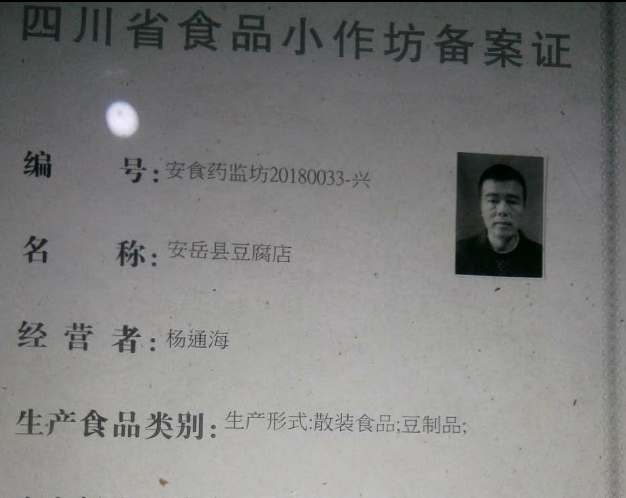 四川省食品小作坊备案证
编 号:安食药监坊20180033-兴
名 称:安岳县豆腐店
经 营 者:杨通海
生产食品类别:生产形式:散装食品;豆制品;